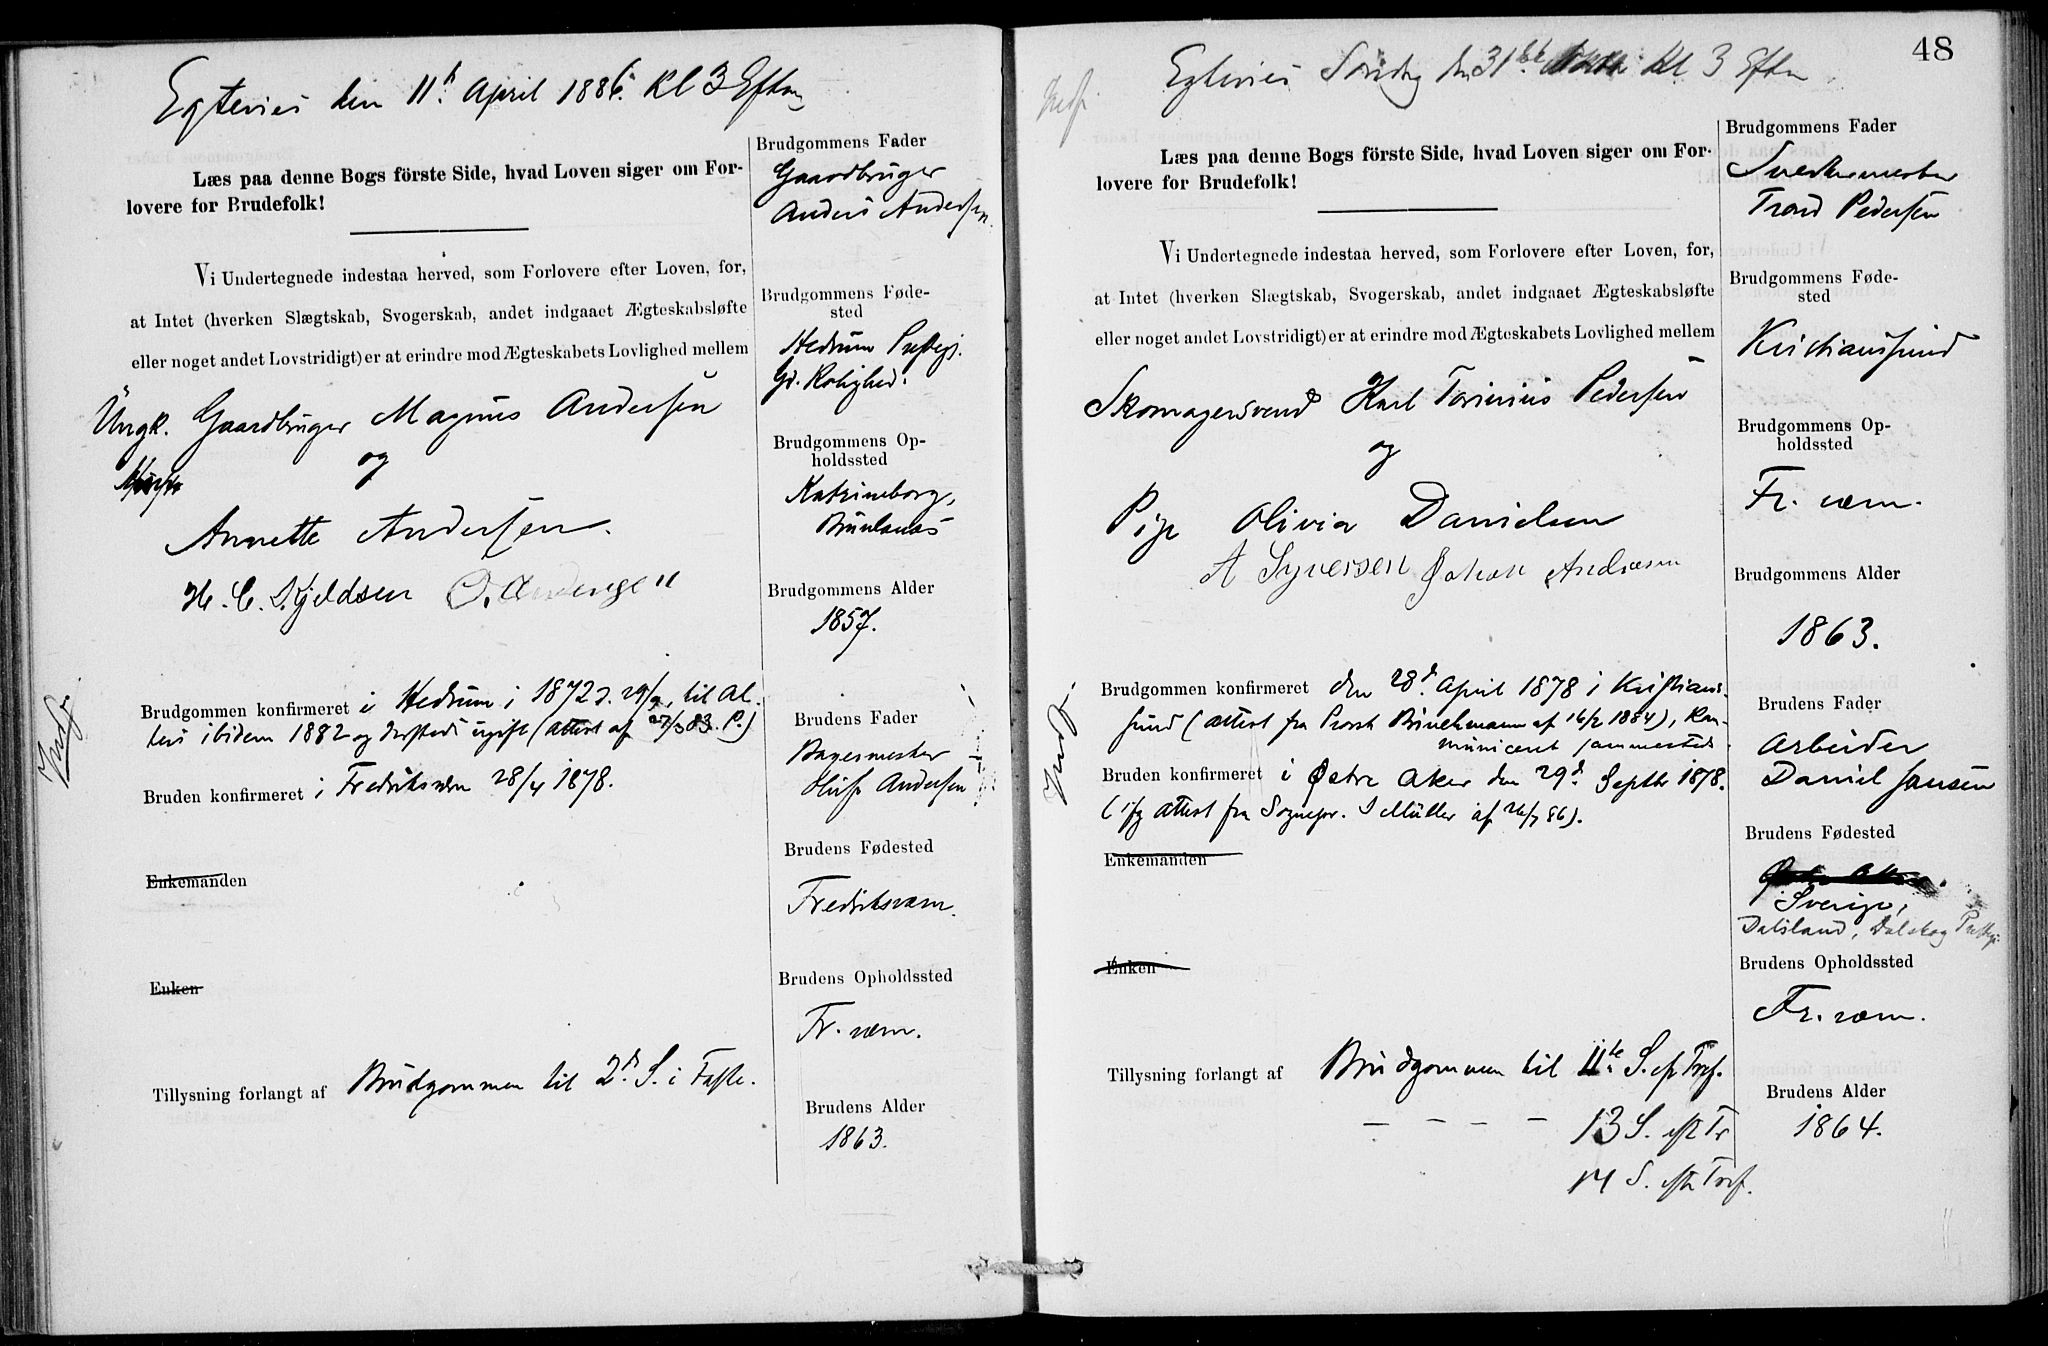 Egtevies den 11te April 1886. Kl 3 Eftm
Læs paa denne Bogs förste Side, hvad Loven siger om For-
lovere for Brudefolk!
Vi Undertegnede indestaa herved, som Forlovere efter Loven, for,
at Intet (hverken Slægtskab, Svogerskab, andet indgaaet Ægteskabsløfte
eller noget andet Lovstridigt) er at erindre mod Ægteskabets Lovlighed mellem
Ungk. Gaardbruger Magnus Andersen
og
Annette Andersen.
H. C. Kjeldsen
Brudgommen konfirmeret i Hedrum i 1872 d. 29/9, til Al-
ters ibidem 1882 og dersteds ugift (Attest af 27/3 83. P.)
Bruden konfirmeret i Fredriksværn 28/4 1878.
Enkemanden
Enken
Tillysning forlangt af Brudgommen til 2d. S. i Faste.
Indf.
Brudgommens Fader
Gaardbruger
Anders Andersen.
Brudgommens Føde-
sted
Hedrum Præstegj.
Gd. Rolighed.
Brudgommens Op-
holdssted
Katrineborg,
Brunlanæs
Brudgommens Alder
1857.
Brudens Fader
Bagermester
Andersen
Brudens Fødested
Fredriksværn.
Brudens Opholdssted
Fr. værn.
Brudens Alder
1863.
48
Indf.
Egtevies Søndag den 31te Kl 3 Eftm
Læs paa denne Bogs förste Side, hvad Loven siger om For-
lovere for Brudefolk!
Vi Undertegnede indestaa herved, som Forlovere efter Loven, for,
at Intet (hverken Slægtskab, Svogerskab, andet indgaaet Ægteskabsløfte
eller noget andet Lovstridigt) er at erindre mod Ægteskabets Lovlighed mellem
Skomagersvend Karl Torinius Pedersen
og
Pige Olivia Danielsen
A Syversen Johan Andersen
Brudgommen konfirmeret den 28d. April 1878 i Kristians-
sund (attest fra Provst Brinchmann af 16/2 1884), kom-
municeret sammesteds.
Bruden konfirmeret i Østre Aker den 29d. Septbr 1878.
(ifg attest fra Sognepr. S Müller af 26/7 86).
Enkemanden
Enken
Tillysning forlangt af Brudgommen til 11te S. ef Tref.
— — — — 13 S. eft Tr
14 S. eftr Tref.
Indf.
Brudgommens Fader
Snedkermester
Trond Pedersen
Brudgommens Føde-
sted
Kristianssund
Brudgommens Op-
holdssted
Fr. værn.
Brudgommens Alder
1863.
Brudens Fader
Arbeider
Daniel Jansen
Brudens Fødested
Sverige,
Dalsland, Dalskog Præstegj.
Brudens Opholdssted
Fr. værn.
Brudens Alder
1864.